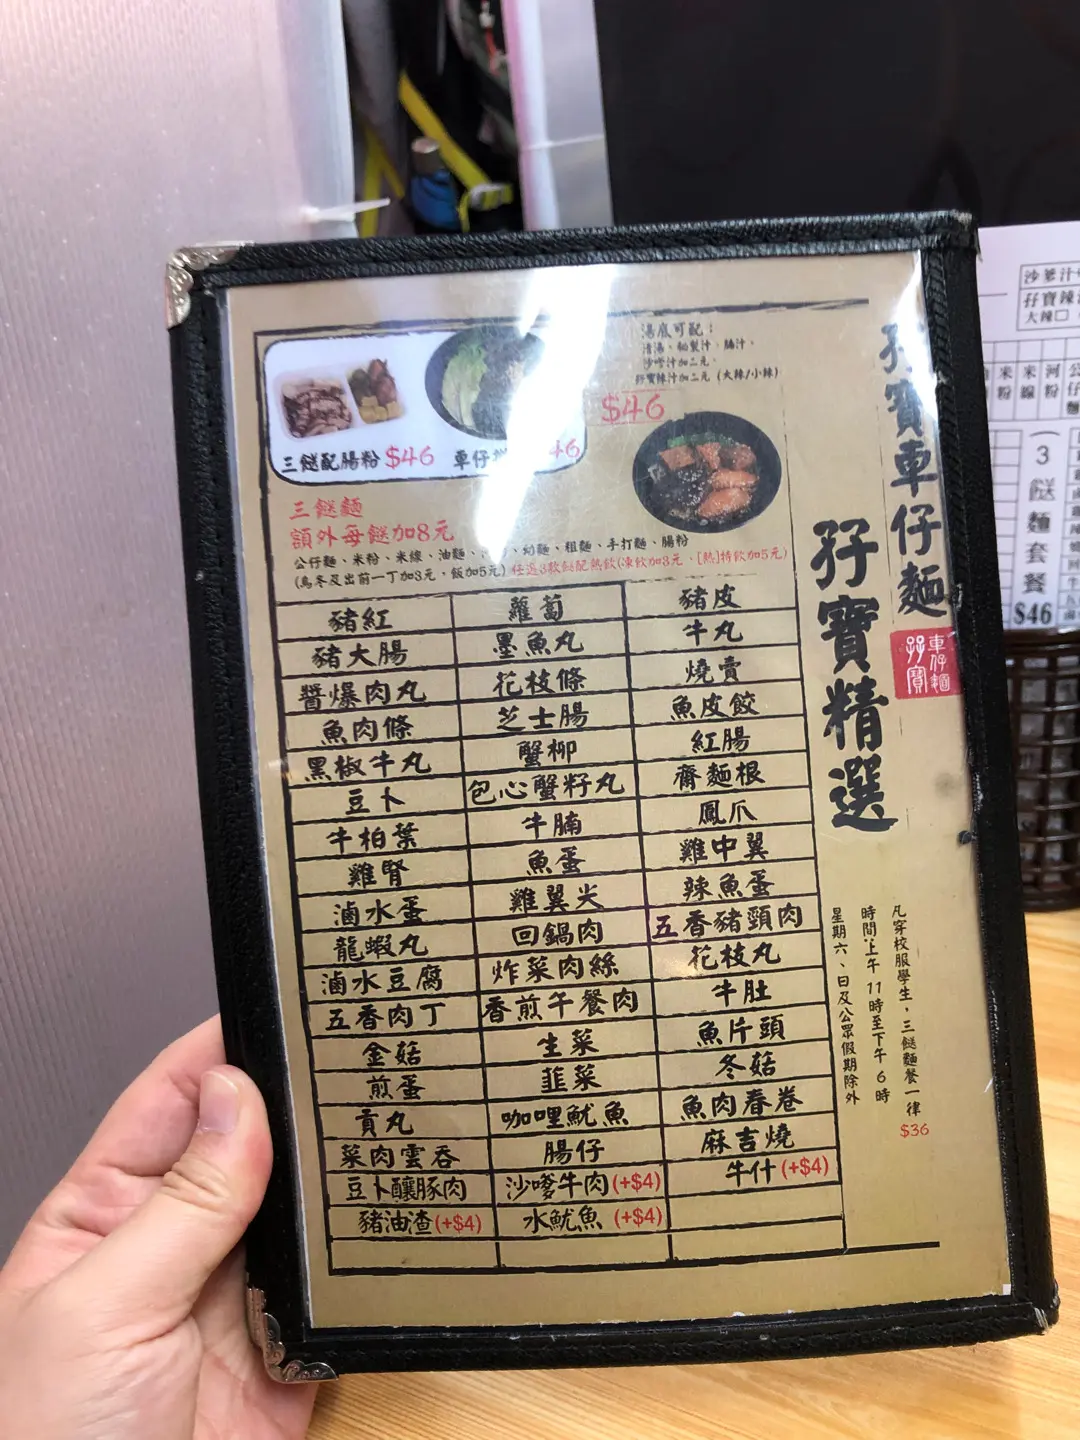 湯底可配：
清湯、秘製汁、腩汁、
沙嗲汁加二元、
孖寶辣汁加二元（大辣/小辣）
$46
三餸配腸粉 $46
車仔 46
三餸麵
額外每餸加8元
公仔麵、米粉、米線、油麵、幼麵、粗麵、手打麵、腸粉
(烏冬及出前一丁加3元，飯加5元) 任選3款餸配熱飲(凍飲加3元，[熱]特飲加5元)
豬紅 蘿蔔 豬皮
豬大腸 墨魚丸 牛丸
醬爆肉丸 花枝條 燒賣
魚肉條 芝士腸 魚皮餃
黑椒牛丸 蟹柳 紅腸
豆卜 包心蟹籽丸 齋麵根
牛柏葉 牛腩 鳳爪
雞腎 魚蛋 雞中翼
滷水蛋 雞翼尖 辣魚蛋
龍蝦丸 回鍋肉 五香豬頸肉
滷水豆腐 炸菜肉絲 花枝丸
五香肉丁 香煎午餐肉 牛肚
金菇 生菜 魚片頭
煎蛋 韮菜 冬菇
貢丸 咖哩魷魚 魚肉春卷
菜肉雲吞 腸仔 麻吉燒
豆卜釀豚肉 沙嗲牛肉(+$4) 牛什(+$4)
豬油渣(+$4) 水魷魚(+$4)
孖寶車仔麵
車仔麵
孖寶
孖寶精選
凡穿校服學生，三餸麵餐一律
$36
時間：上午11時至下午6時
星期六、日及公眾假期除外
沙爹汁
孖寶辣
大辣□
米粉
米線
河粉
公仔麵
(3餸麵套餐
$46